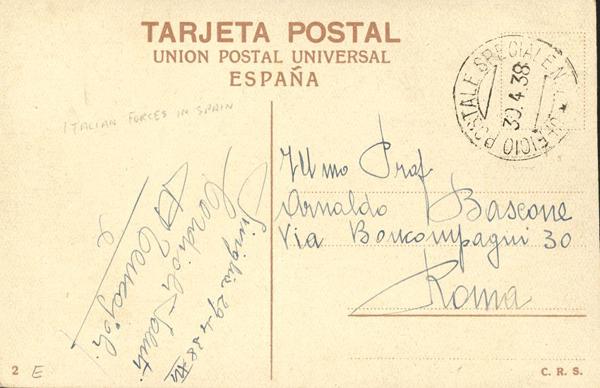 TARJETA POSTAL
UNION POSTAL UNIVERSAL
ESPAÑA
UFFICIO POSTALE SPECIALE N.
30.4.38
ITALIAN FORCES IN SPAIN
Ill mo Prof
Arnaldo Bascone
Via Boncompagni 30
Roma
29.4.38 XVI
Cordiali Saluti
2 E
C. R. S.